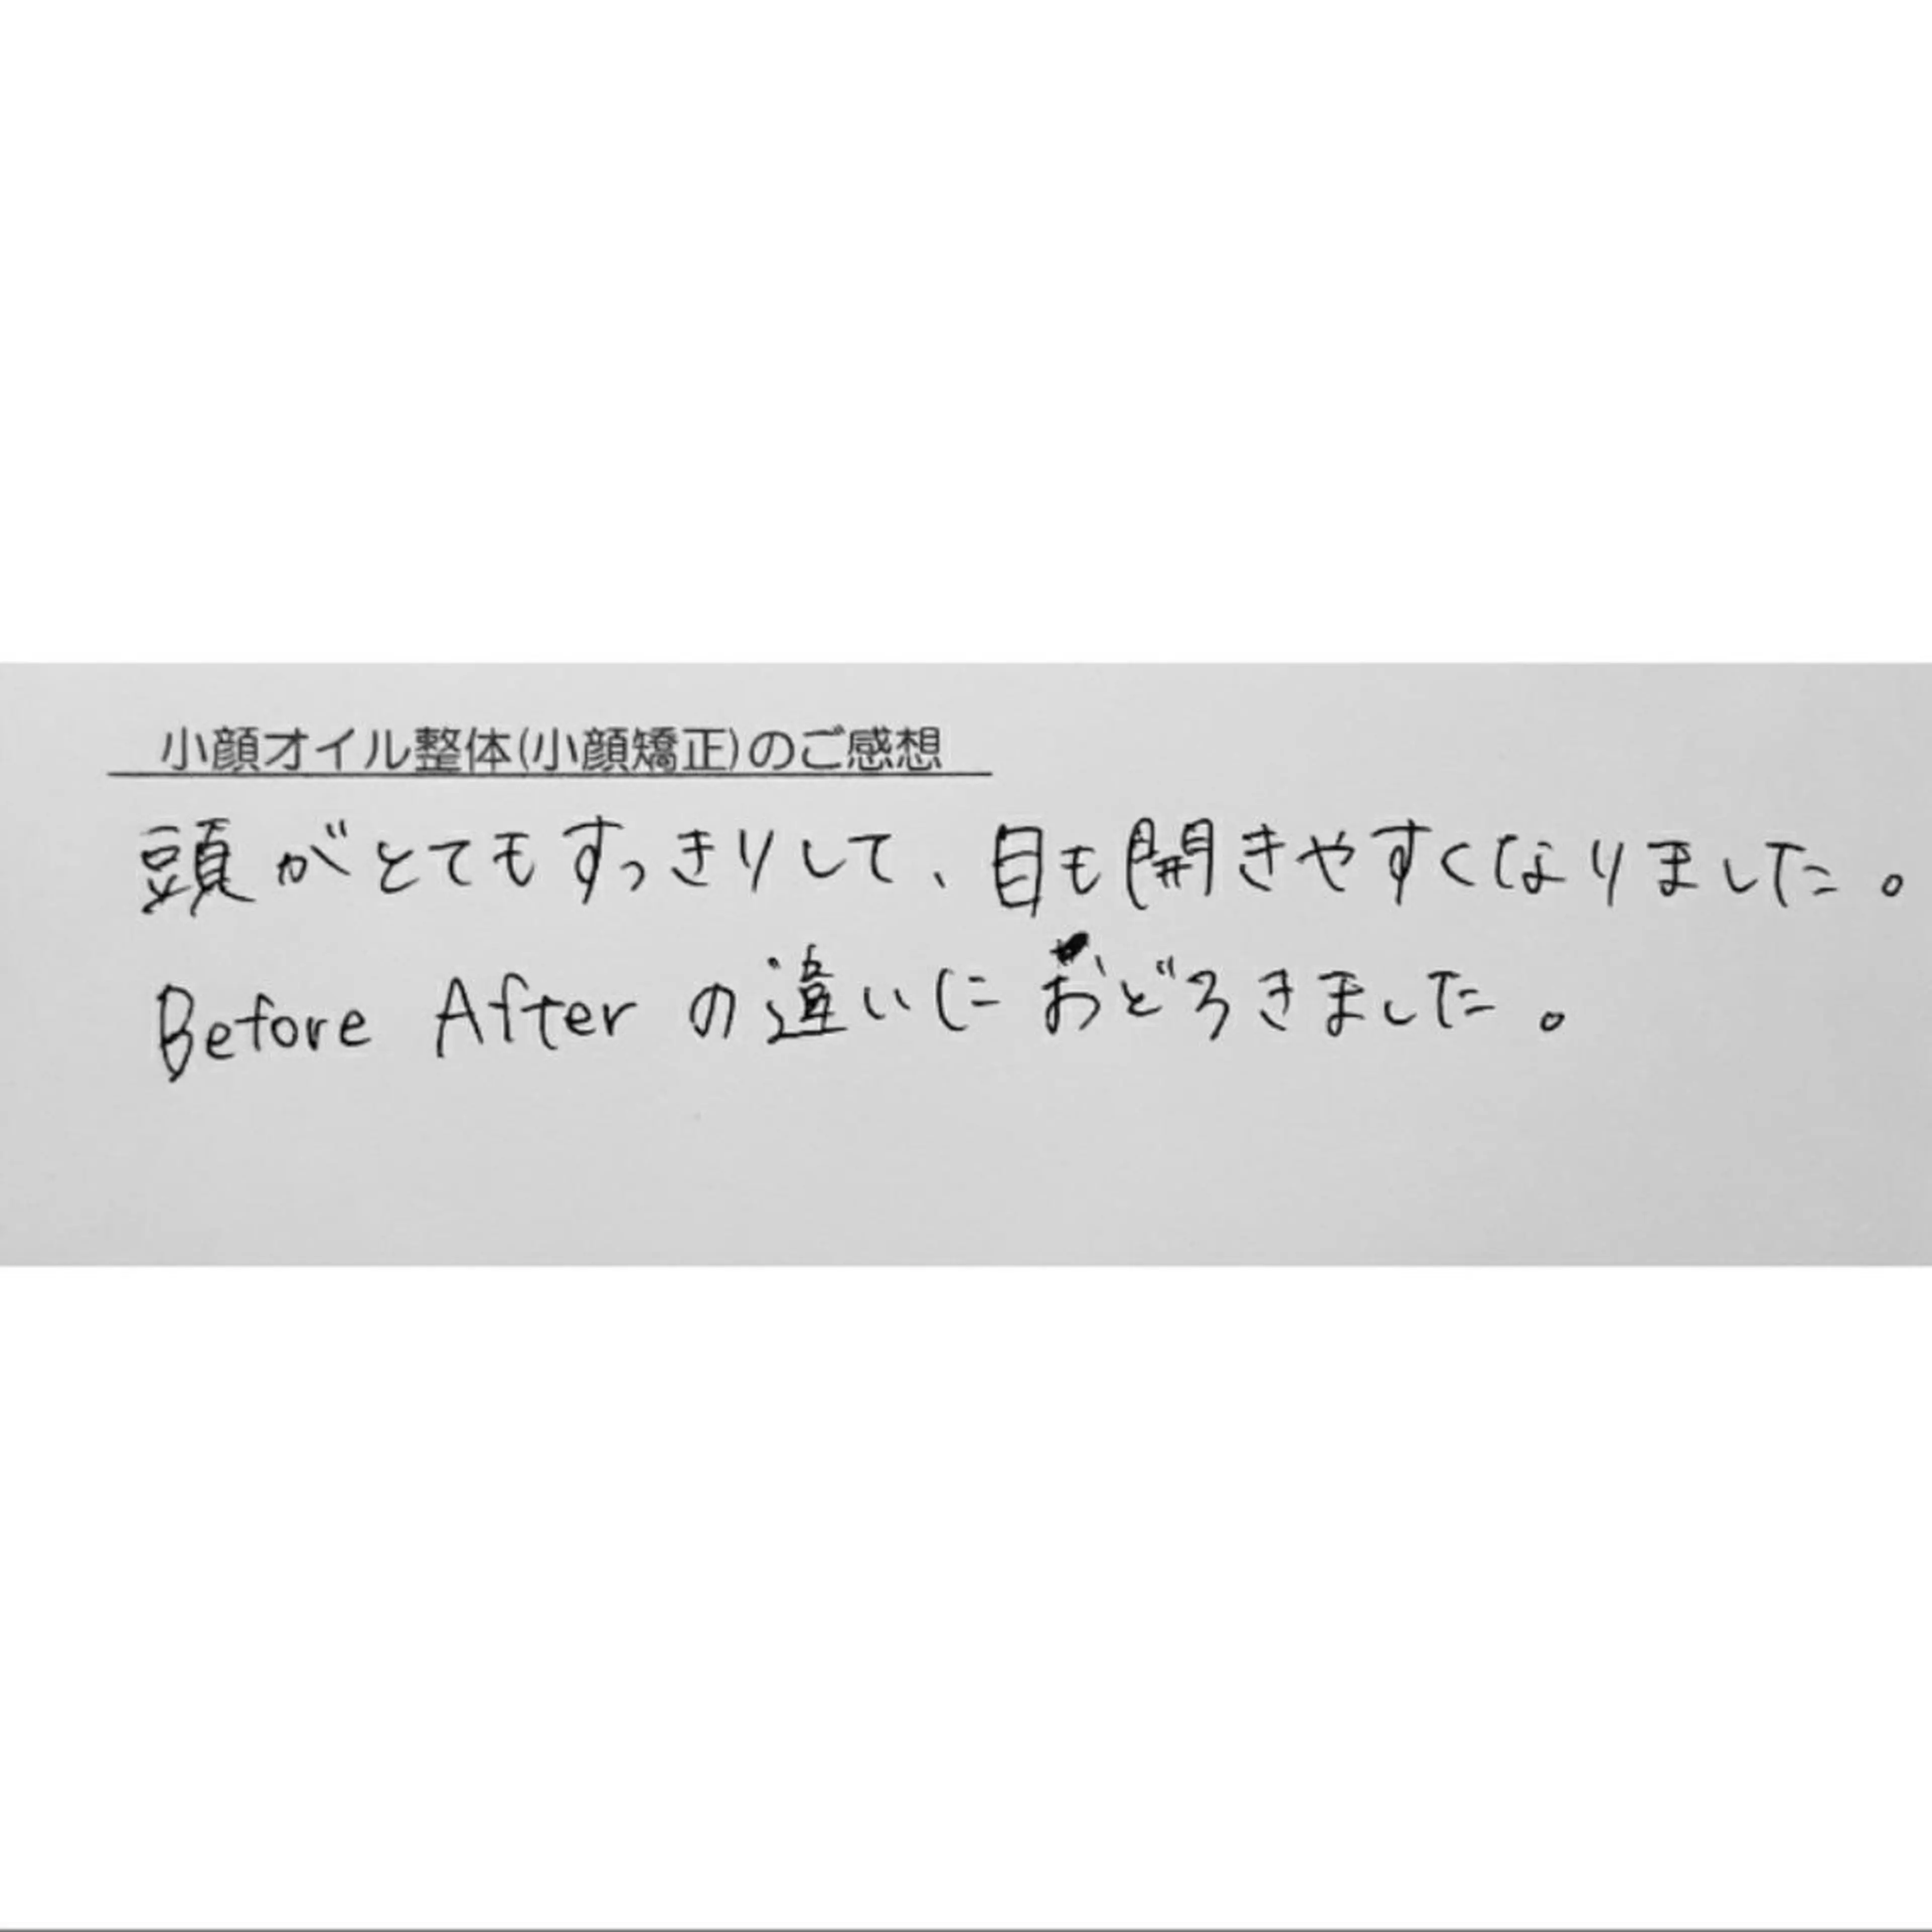 小顔オイル整体(小顔矯正)のご感想
頭がとてもすっきりして、目も開きやすくなりました。
Before Afterの違いにおどろきました。